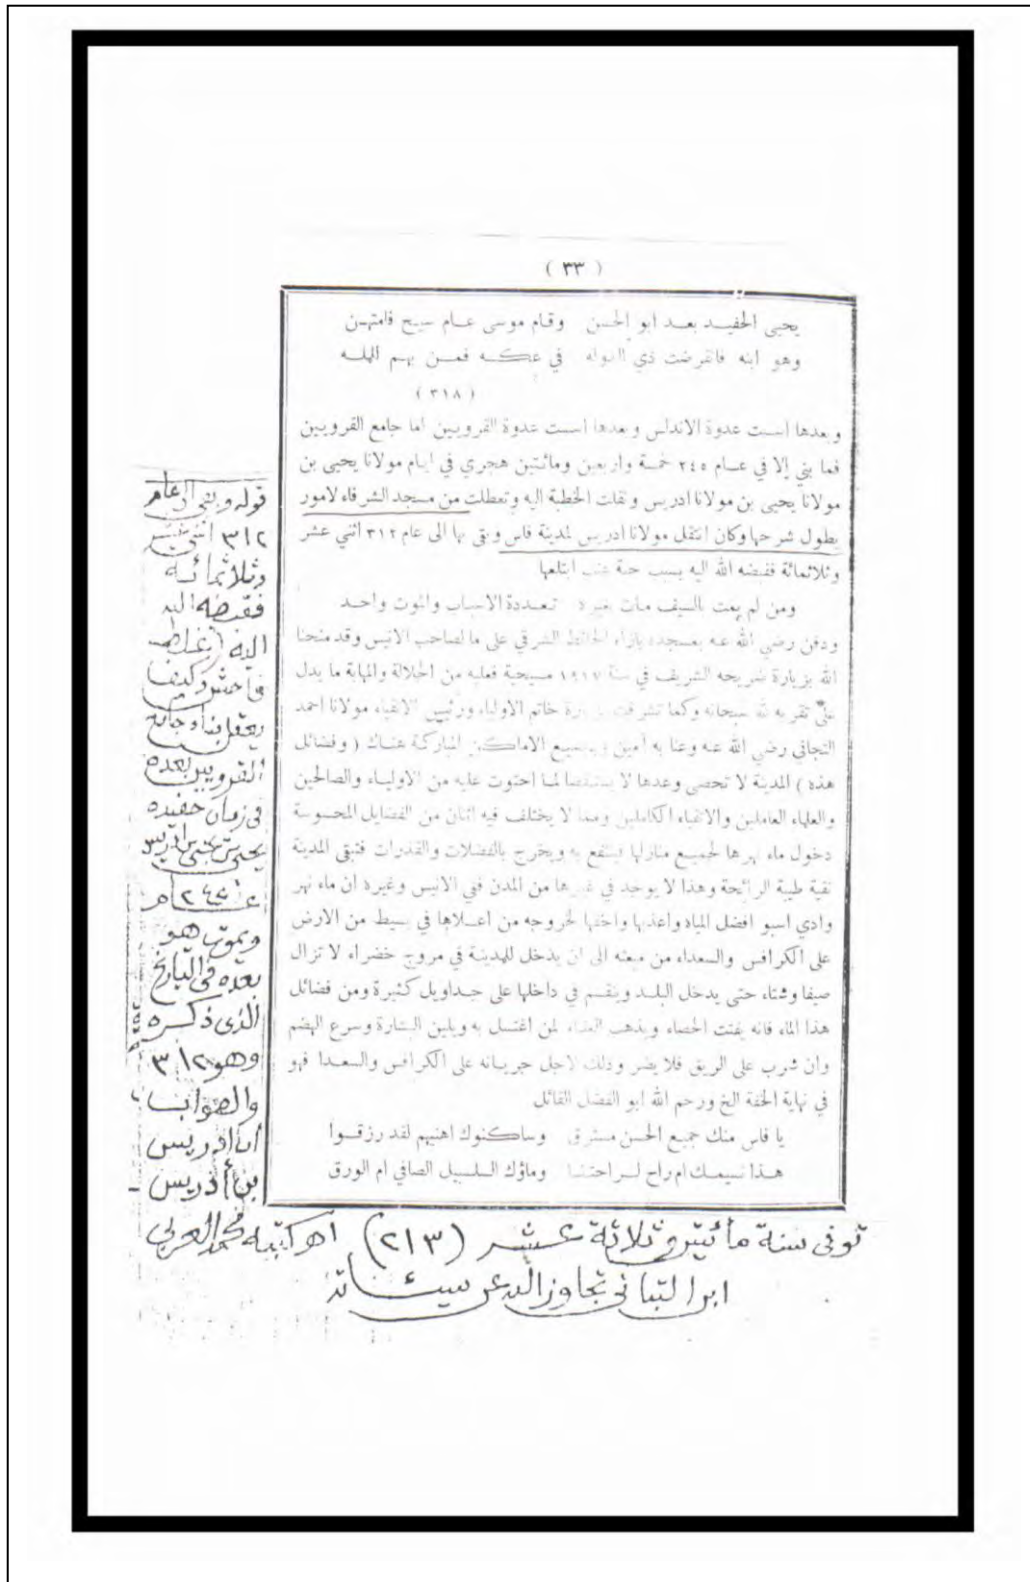 ( ٣٣ )
يحيى الحفيد بعد ابو الحسن وقام موسى عام سيح فامتهن
وهو ابنه فانقرضت ذي الدوله في عكه فمن بهم المله
( ٣١٨ )
وبعدها اسست عدوة الاندلس وبعدها اسست عدوة القرويين اما جامع القرويين
فما بني إلا في عام ٢٤٥ خمسة واربعين ومائتين هجري في ايام مولانا يحيى بن
مولانا يحيى بن مولانا ادريس ونقلت الخطبة اليه وتعطلت من مسجد الشرفاء لامور
يطول شرحها وكان انتقل مولانا ادريس لمدينة فاس وبقى بها الى عام ٣١٢ اثني عشر
وثلاثمائة فقبضه الله اليه بسبب حبة عنب ابتلعها
ومن لم يمت بالسيف مات بغيره تعددة الاسباب والموت واحد
ودفن رضي الله عنه بمسجده بازاء الحائط الشرقي على ما لصاحب الانيس وقد منحنا
الله بزيارة ضريحه الشريف في سنة ١٩١٧ مسيحية فعليه من الجلالة والمهابة ما يدل
على تقربه لله سبحانه وكما تشرفت بزيارة خاتم الاولياء ورئيس الاتقياء مولانا احمد
التجاني رضي الله عنه وعنا به أمين وبجميع الاماكن المباركة هناك ( وفضائل
هذه ) المدينة لا تحصى وعدها لا يستقصا لما احتوت عليه من الاولياء والصالحين
والعلماء العاملين والاتقياء الكاملين ومما لا يختلف فيه اثنان من الفضايل المحسوسة
دخول ماء نهرها لجميع منازلها فينتفع به ويخرج بالفضلات والقذرات فتبقى المدينة
نقية طيبة الرائحة وهذا لا يوجد في غيرها من المدن ففي الانيس وغيره ان ماء نهر
وادي اسبو افضل المياه واعذبها واخفها لخروجه من اعلاها في بسيط من الارض
على الكرافس والسعداء من منبعه الى ان يدخل للمدينة في مروج خضراء لا تزال
صيفا وشتاء حتى يدخل البلد وينقسم في داخلها على جداويل كثيرة ومن فضائل
هذا الماء فانه يفتت الحصاء ويذهب لمن اغتسل به ويلين البشارة وسرع الهضم
وان شرب على الريق فلا يضر وذلك لاجل جريانه على الكرافس والسعدا فهو
في نهاية الخفة الخ ورحم الله ابو الفضل القائل
يا فاس منك جميع الحسن مسترق وساكنوك اهنيهم لقد رزقوا
هذا نسيمك ام راح لراحتنا وماؤك السلسبيل الصافي ام الورق
قوله وبقي الى عام
٣١٢ اثني عشر
وثلاثمائة
فقبضه الله
اليه (غلط
فاحش وكيف
يعقل بناء جامع
القرويين بعده
في زمان حفيده
يحيى بن يحيى بن ادريس
عام ٢٤٥
ويموت هو
بعده في التاريخ
الذي ذكره
وهو ٣١٢
والصواب
أن ادريس
بن أدريس
توفى سنة مائتين وثلاثة عشر (٢١٣) اهـ كتبه محمد العربي
ابن التباني تجاوز الله عن سيئاته